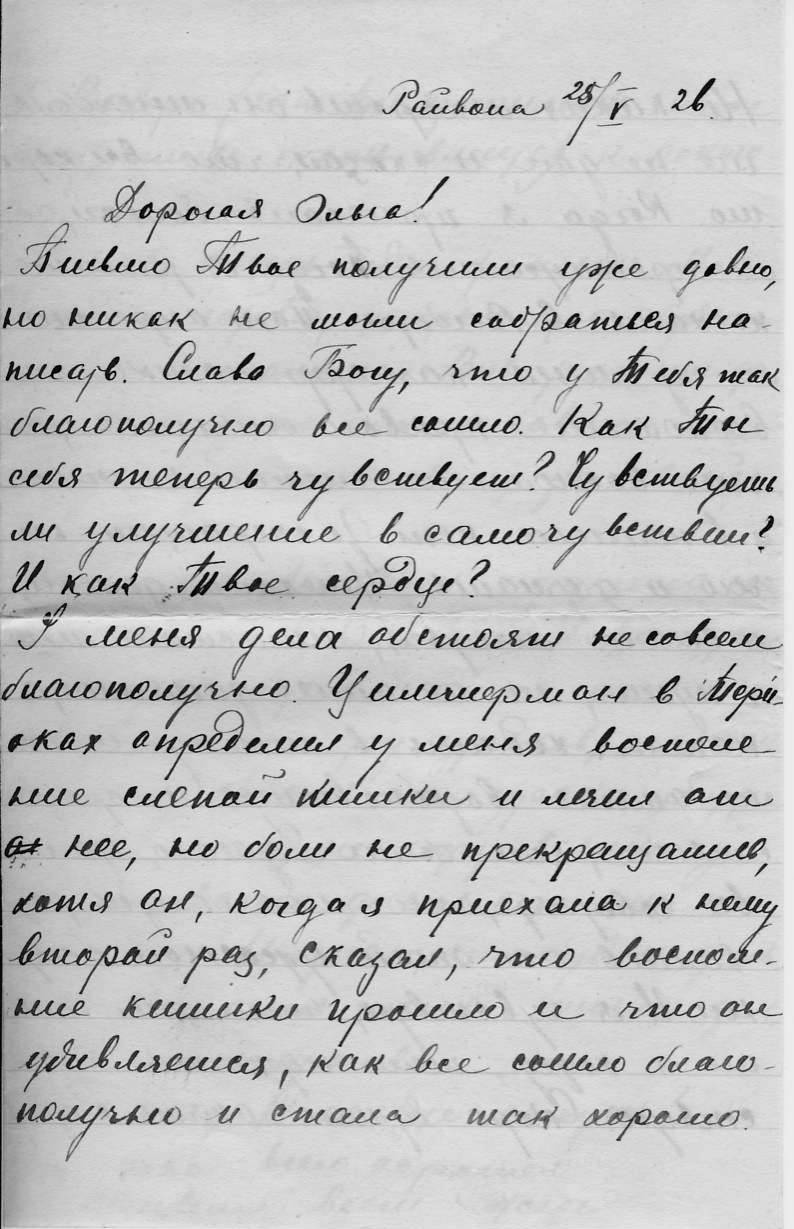 Райвола 28/V 26.
Дорогая Ольга!
Письмо Твое получили уже давно,
но никак не могли собраться на-
писать. Слава Богу, что у Тебя так
благополучно все сошло. Как Ты
себя теперь чувствуешь? Чувствуешь
ли улучшение в самочувствии?
И как Твое сердце?
У меня дела обстоят не совсем
благополучно. Циммерман в Тери-
оках определил у меня воспале-
ние слепой кишки и лечил от
нее, но боли не прекращались,
хотя он, когда я приехала к нему
второй раз, сказал, что воспале-
ние кишки прошло и что он
удивляется, как все сошло благо-
получно и стала так хорошо.